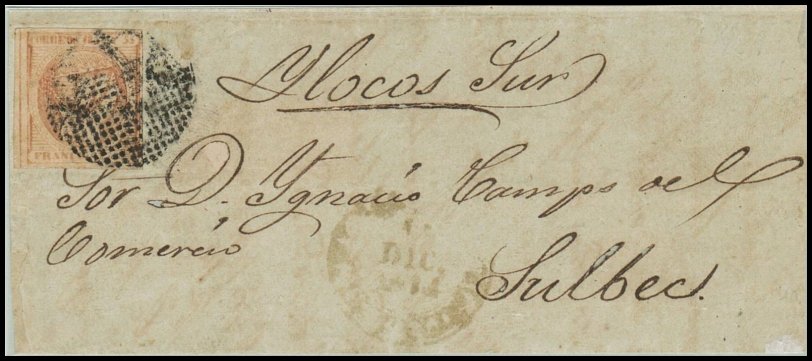 CORREOS
FRAN
Ylocos Sur
Sor D. Ygnacio Camps del
Comercio
DIC
Sulbec.